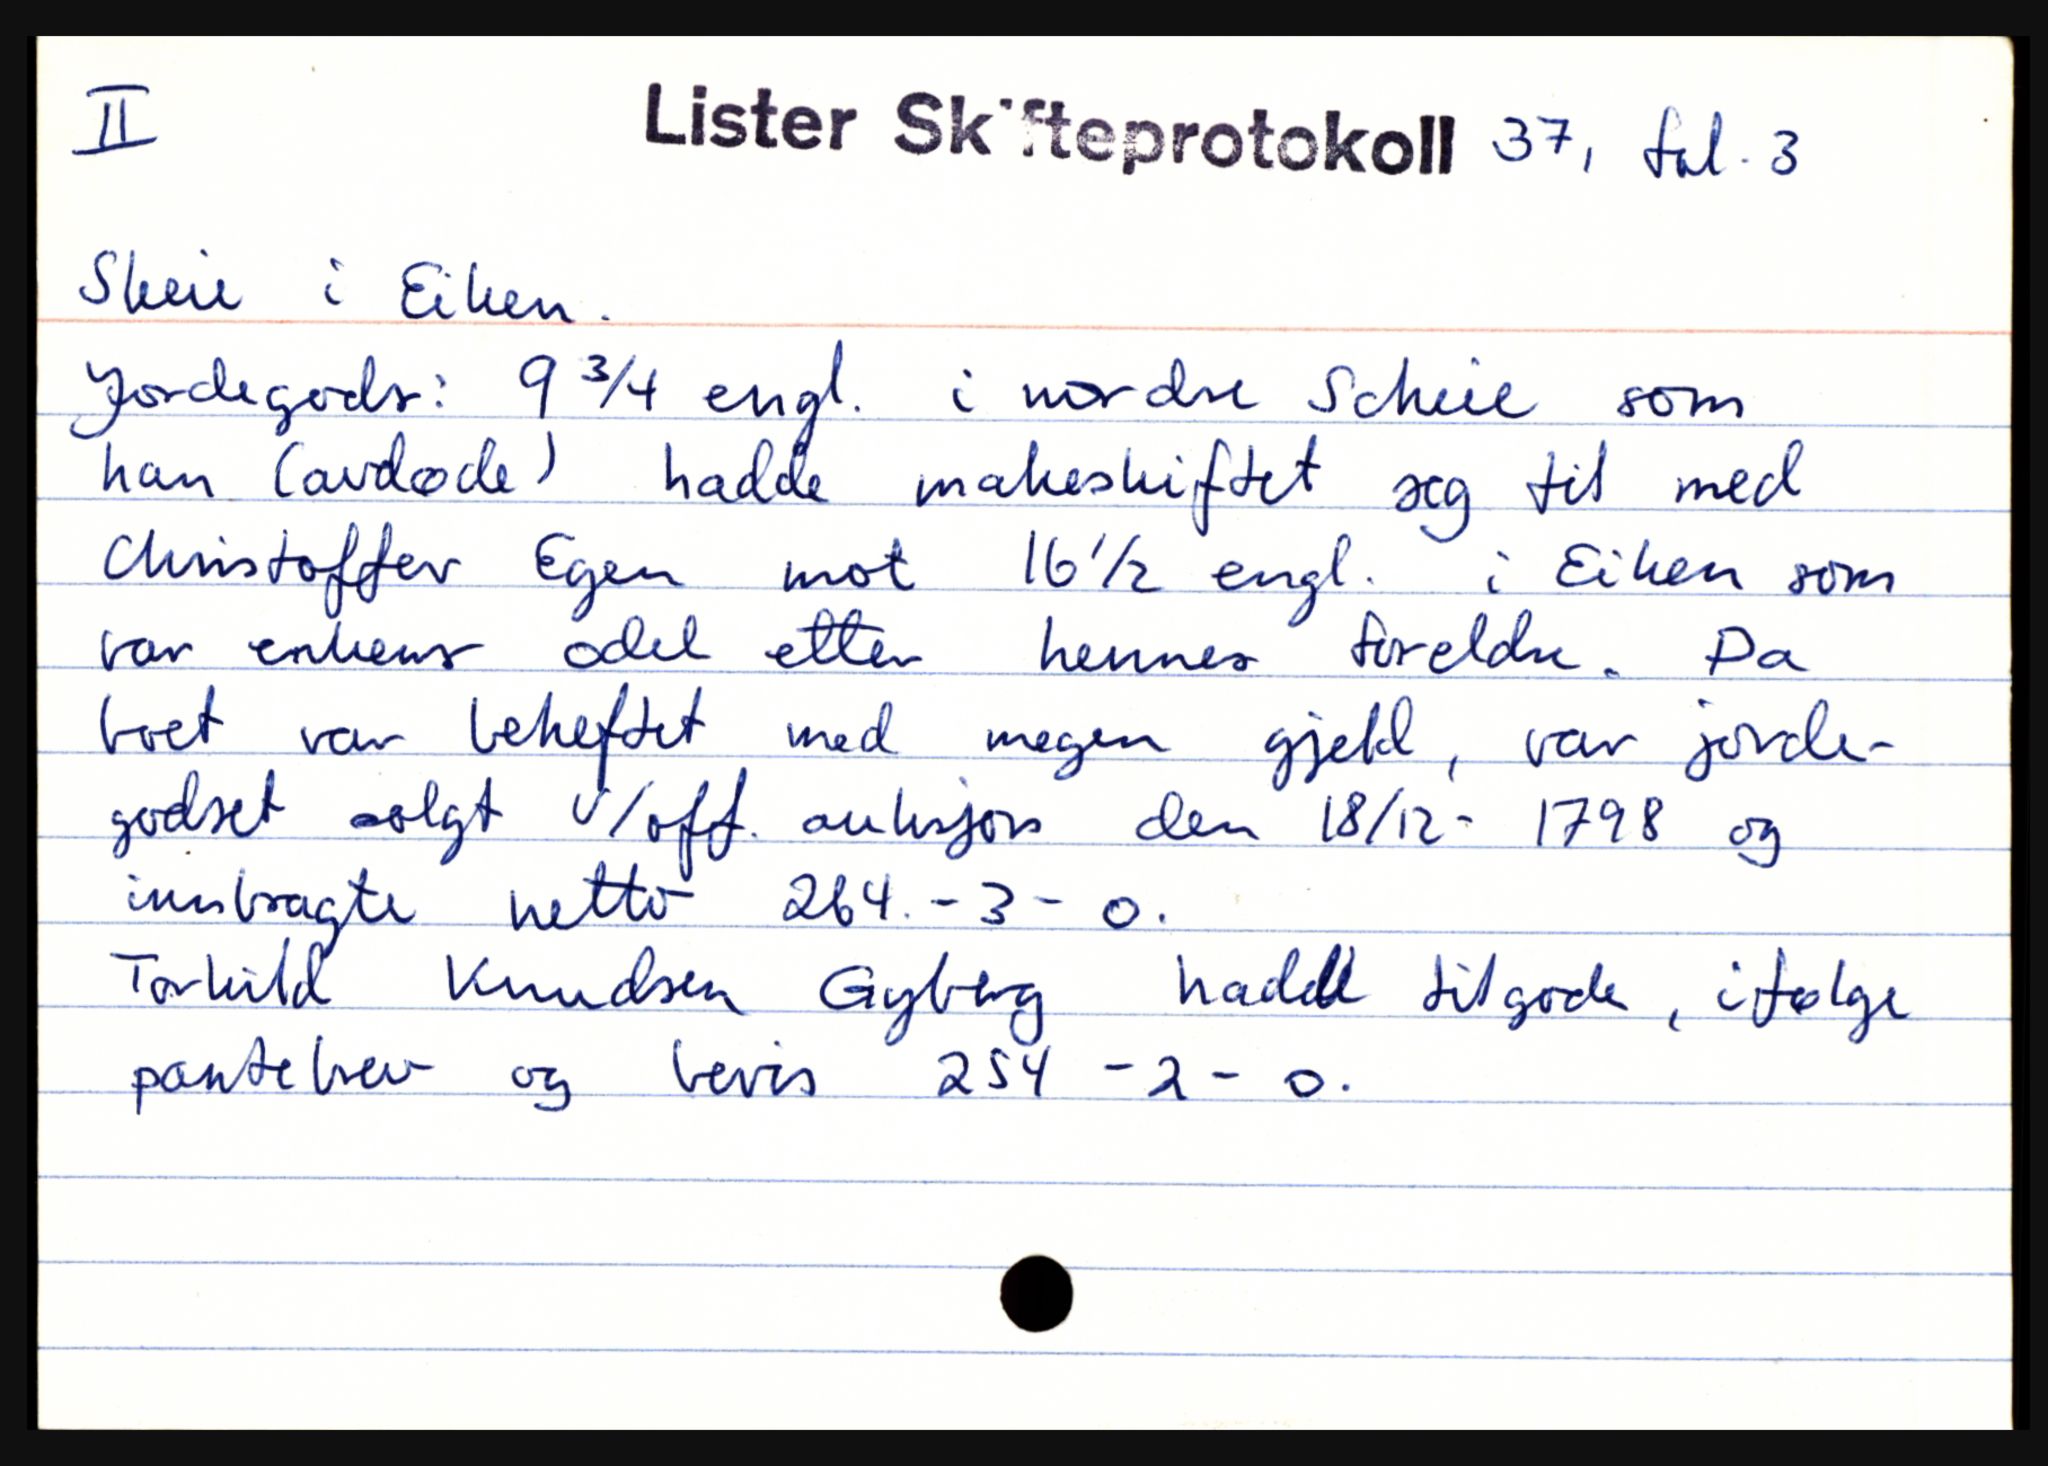 II Lister Skifteprotokoll 37, fol. 3
Skeie i Eiken.
Jordegods: 9 3/4 engl. i nordre Scheie som
han (avdøde) hadde makeskiftet seg til med
Christoffer Egen mot 16 1/2 engl. i Eiken som
var enkens odel etter hennes foreldre. Da
boet var beheftet med megen gjeld, var jorde-
godset solgt v/off. auksjon den 18/12- 1798 og
innbragte netto 264.-3-0.
Torkild Knudsen Gyberg hadde tilgode, ifølge
pantebrev og bevis 254-2-0.